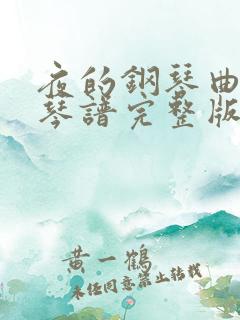 夜的鋼琴曲
琴譜完整版
黄一鶴
未经同意禁止转载